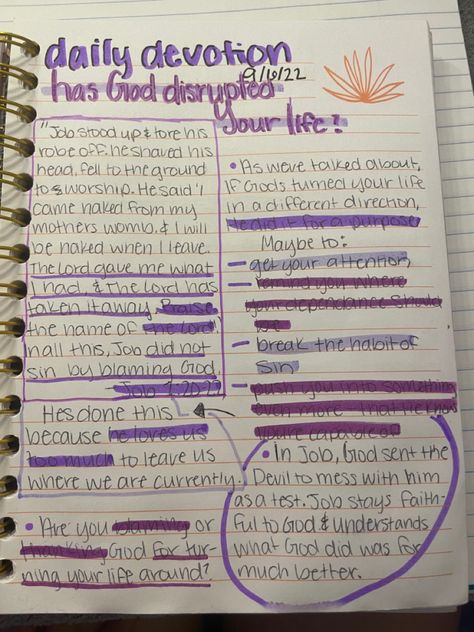 daily devotion
9/6/22
has God disrupted
your life?
"Job stood up & tore his
robe off. he shaved his
head, fell to the ground
to & worship. He said 'I
came naked from my
mothers womb. & I will
be naked when I leave.
The Lord gave me what
I had, & the Lord has
taken it away. Praise
the name of the Lord!'
In all this, Job did not
sin by blaming God.
- Job 1:20-22
Hes done this
because he loves us
too much to leave us
where we are currently.
• Are you blaming or
thanking God for tur-
ning your life around?
• As weve talked about,
If Gods turned your life
in a different direction,
He did it for a purpose
Maybe to:
- get your attention,
- remind you where
your dependance should
be
- break the habit of
sin
- push you into something
even more that He knows
you're capable of
• In Job, God sent the
Devil to mess with him
as a test. Job stays faith-
ful to God & understands
what God did was for
much better.